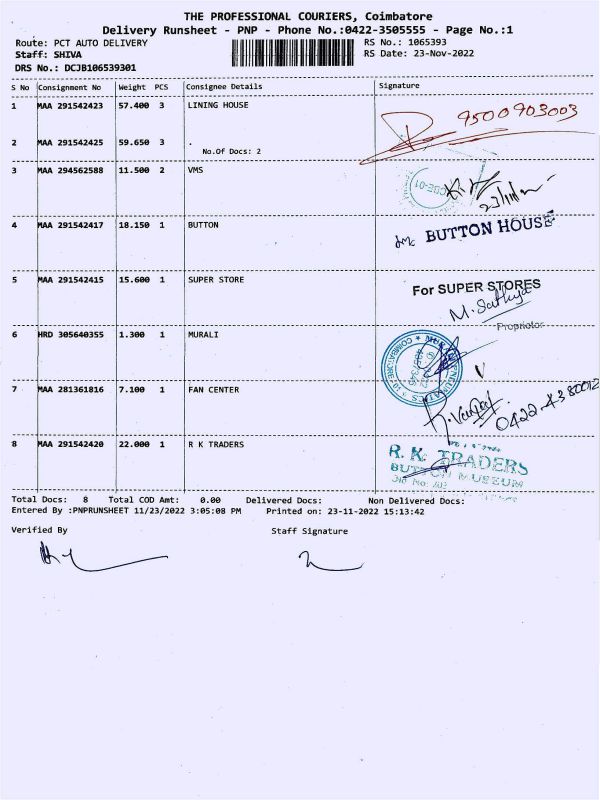 THE PROFESSIONAL COURIERS, Coimbatore
Delivery Runsheet - PNP - Phone No.:0422-3505555 - Page No.:1
Route: PCT AUTO DELIVERY RS No.: 1065393
Staff: SHIVA RS Date: 23-Nov-2022
DRS No.: DCJB106539301
S No Consignment No Weight PCS Consignee Details Signature
1 MAA 291542423 57.400 3 LINING HOUSE
9500903003
2 MAA 291542425 59.650 3 .
No.Of Docs: 2
3 MAA 294562588 11.500 2 VMS
23/11/22
4 MAA 291542417 18.150 1 BUTTON
BUTTON HOUSE
5 MAA 291542415 15.600 1 SUPER STORE
For SUPER STORES
M. Sathya
Proprietor
6 HRD 305640355 1.300 1 MURALI
7 MAA 281361816 7.100 1 FAN CENTER
8 MAA 291542420 22.000 1 R K TRADERS
R. K. TRADERS
BUTTON MUSEUM
Total Docs: 8 Total COD Amt: 0.00 Delivered Docs: Non Delivered Docs:
Entered By :PNPRUNSHEET 11/23/2022 3:05:08 PM Printed on: 23-11-2022 15:13:42
Verified By Staff Signature